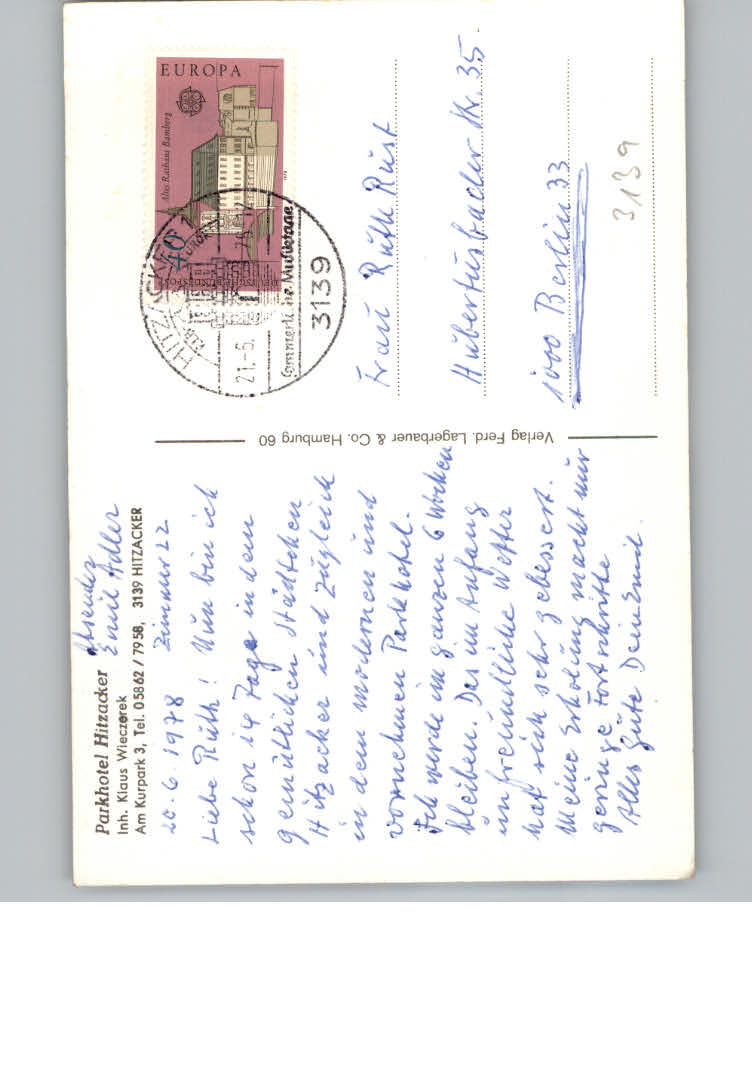 Parkhotel Hitzacker
Inh. Klaus Wieczorek
Am Kurpark 3, Tel. 05862/7958, 3139 HITZACKER
Absender
Emil Adler
Zimmer 22
20.6.1978
Liebe Ruth! Nun bin ich
schon 14 Tage in dem
gemütlichen Städtchen
Hitzacker und zugleich
in dem modernen und
vornehmen Parkhotel.
Ich werde im ganzen 6 Wochen
bleiben. Das im Anfang
unfreundliche Wetter
hat sich sehr gebessert.
Meine Erholung macht nur
geringe Fortschritte
Alles Gute Dein Emil.
Verlag Ferd. Lagerbauer & Co. Hamburg 60
EUROPA
Altes Rathaus Bamberg
40
DEUTSCHE BUNDESPOST
HITZACKER 1
21.-6.
Sommerliche Musiktage
3139
Frau Ruth Rust
Hubertusbader Str. 35.
1000 Berlin 33
3139